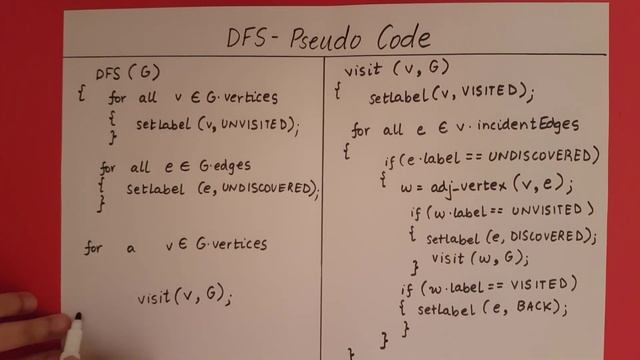 DFS - Pseudo Code
DFS (G)
{ for all v ∈ G.vertices
{ setlabel (v, UNVISITED);
}
for all e ∈ G.edges
{ setlabel (e, UNDISCOVERED);
}
for a v ∈ G.vertices
visit (v, G);
visit (v, G)
{ setlabel (v, VISITED);
for all e ∈ v.incidentEdges
{ if (e.label == UNDISCOVERED)
{ w = adj_vertex (v, e);
if (w.label == UNVISITED)
{ setlabel (e, DISCOVERED);
} visit (w, G);
if (w.label == VISITED)
{ setlabel (e, BACK);
}
}
}
}